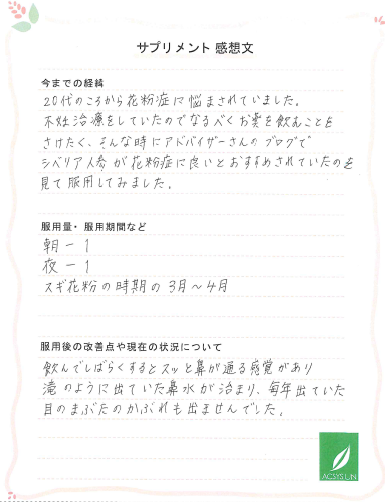 サプリメント 感想文
今までの経緯
20代のころから花粉症に悩まされていました。
不妊治療をしていたのでなるべくお薬を飲むことを
さけたく、そんな時にアドバイザーさんのブログで
シベリア人参が花粉症に良いとおすすめされていたのを
見て服用してみました。
服用量・服用期間など
朝－1
夜－1
スギ花粉の時期の3月～4月
服用後の改善点や現在の状況について
飲んでしばらくするとスッと鼻が通る感覚があり
滝のように出ていた鼻水が治まり、毎年出ていた
目のまぶたのかぶれも出ませんでした。
ACSYSUN